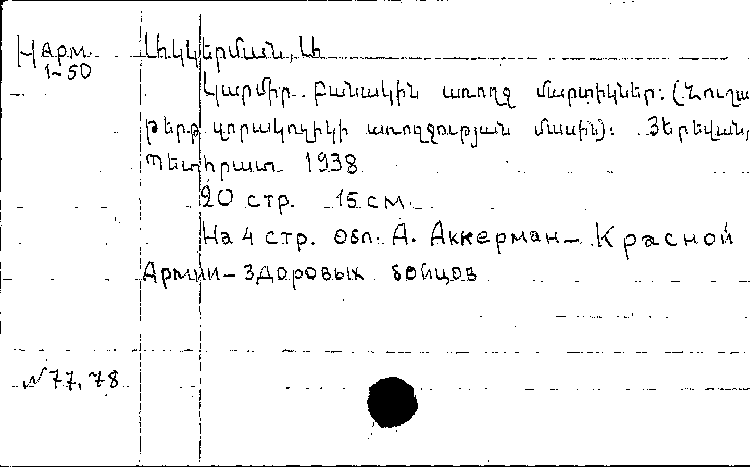 Н арм. Ակկերման, Ա
1-50
Կարմիր բանակին առողջ մարտիկներ: (Հուշա
թերթ զորակոչիկի առողջության մասին): Յերեվան,
Պետհրատ 1938
20 стр. 15 см.
На 4 стр. обл. А. Аккерман – Красной
Армии – здоровых бойцов
N 77, 78